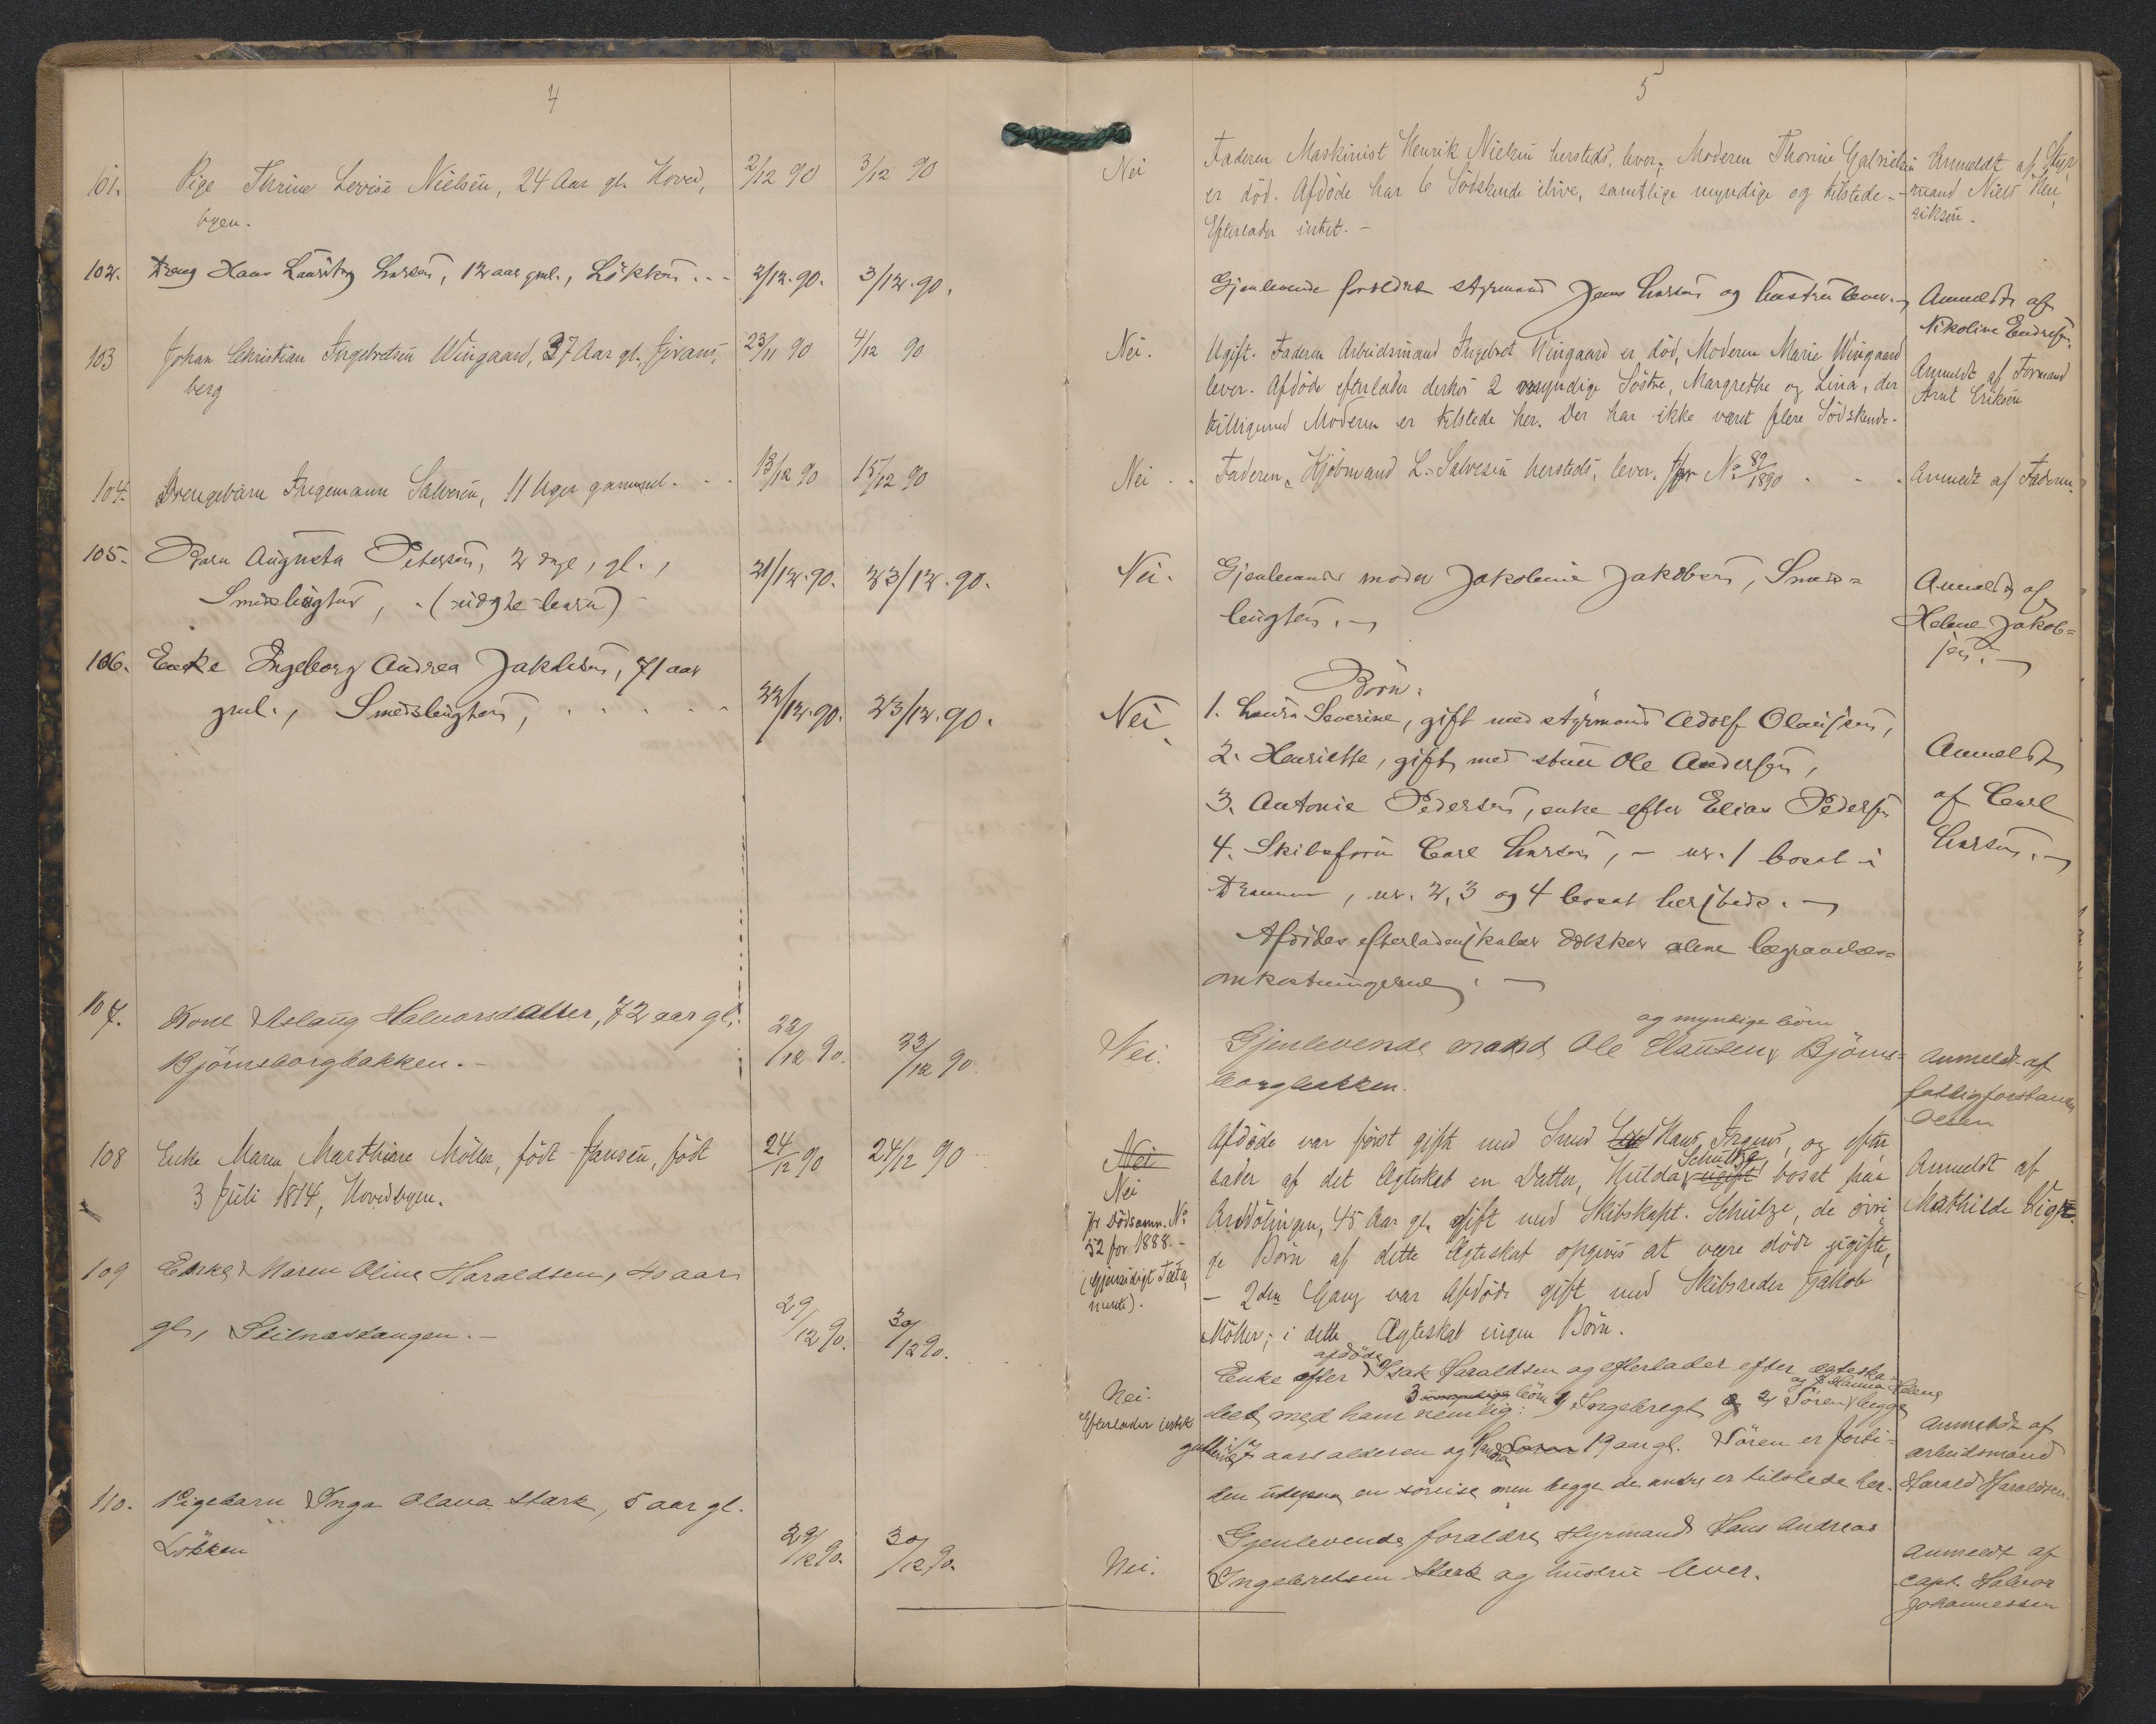 4
101. Pige Thrine Lovise Nielsen, 24 Aar gl. Hoved,
byen.
2/12 90 3/12 90
102. Dreng Hans Lauritz Larsen, 12 aar gml., Løkken ... 2/12.90. 3/12.90.
103 Johan Christian Ingebretsen Wingaard, 37 Aar gl.
berg
23/11 90 4/12 90
104. Drengebarn Ingemann Salvesen, 11 Uger gammel. . . 13/12 90 15/12 90
105. Barn Augusta Petersen, 2 dage, gl.,
(uægte barn)
21/12.90. 23/12.90.
106. Enke Ingeborg Andrea Jakobsen, 71 aar
gml.,
22/12.90. 23/12.90.
107. Kone Aslaug Halvorsdatter, 72 aar gl.
Bjørnsborgbakken.
22/12 90. 23/12 90
108 Enke Maren Marthine Møller, født Jansen, født
3 Juli 1814, Hovedbyen.
24/12 90 24/12 90
109 Enke Maren Oline Haraldsen, 40 aar
gl.,
29/12 90. 30/12 90.
110. Pigebarn Inga Olava Stark, 5 aar gl.
Løkken
29/12 90. 30/12 90.
5
Nei Faderen Maskinist Henrik Nielsen hersteds, lever; Moderen Thorine Gabrielsen
er død. Afdøde har 6 Södskende ilive, samtlige myndige og tilstede.
Efterlader intet. –
Anmeldt af Styr,
mand Niels Hen,
riksen.
Gjenlevende forældre styrmand Jens Larsen og hustru lever.
Anmeldt af
Nikoline Endresen.
Nei. Ugift. Faderen Arbeidsmand Ingebret Wingaard er død, Moderen Marie Wingaard
lever. Afdøde efterlader derhos 2 myndige Söstre, Margrethe og Lina, der
tilligemed Moderen er tilstede her. Der har ikke været flere Södskende.
Anmeldt af Formand
Arnt Eriksen
Nei . . Faderen, Kjøbmand L. Salvesen hersteds, lever. Jfr No 89/1890 . . .
Anmeldt af Faderen.
Nei. Gjenlevende moder Jakobine Jakobsen,
Anmeldt af
Helene Jakob=
sen.
Børn:
Nei 1. Laura Severine, gift med styrmand Adolf Olausen,
2. Henriette, gift med Ole Andersen,
3. Antonie Pedersen, enke efter Elias Pedersen
4. Skibsfører Carl Larsen, – nr. 1 bosat i
Drammen, nr. 2, 3 og 4 bosat hersteds.
Afdødes efterladenskaber dækker alene begravelses=
omkostningerne.
Anmeldt
af Carl
Larsen.
og myndige børn
Nei. Gjenlevende mand Ole Clausen, Bjørns=
borgbakken.
Anmeldt af
fattigforstander
Olsen
Nei
Nei
jfr Dödsanm. No
52 for 1888. –
(Gjensidigt Testa,
mente).
Afdøde var först gift med Smed Hans Irgens, og efter
lader af det Ægteskab en Datter, Hulda Schultze ugift bosat paa
Arddölingen, 45 Aar gl. gift med Skibskapt. Schultze, de övri
ge Børn af dette Ægteskab opgives at være døde ugifte,
– 2den Gang var Afdøde gift med Skibsreder Jakob
Möller; i dette Ægteskab ingen Børn.
Anmeldt af
Mathilde
Nei.
Efterlader intet
Enke efter afdøde Isak Haraldsen og efterlader efter ægteska=
bet med ham 3 umyndige børn nemlig: 1, Ingebregt 2, Søren og 3, Hanna Helene begge
aars alderen og Hanna 19 aar gl. Søren er for ti=
den udepaa en søreise men begge de andre er tilstede her.
Anmeldt af
arbeidsmand
Harald Haraldsen.
Nei. Gjenlevende forældre styrmand Hans Andreas
Ingebretsen Stark og hustru lever.
Anmeldt af
Capt. Halvor
Johannessen